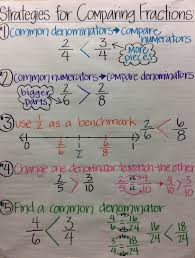 Strategies for Comparing Fractions
#1 Common denominators → Compare numerators
2/4 < 3/4
more pieces
#2 Common numerators → Compare denominators
bigger parts
2/6 > 2/8
#3 use 1/2 as a benchmark
2/6 < 6/8
0 2/6 1/2 6/8 1
#4 Change one denominator to match the other
2/5 > 3/10
4/10 > 3/10
#5 Find a common denominator
4/6 < 3/4
16/24 < 18/24